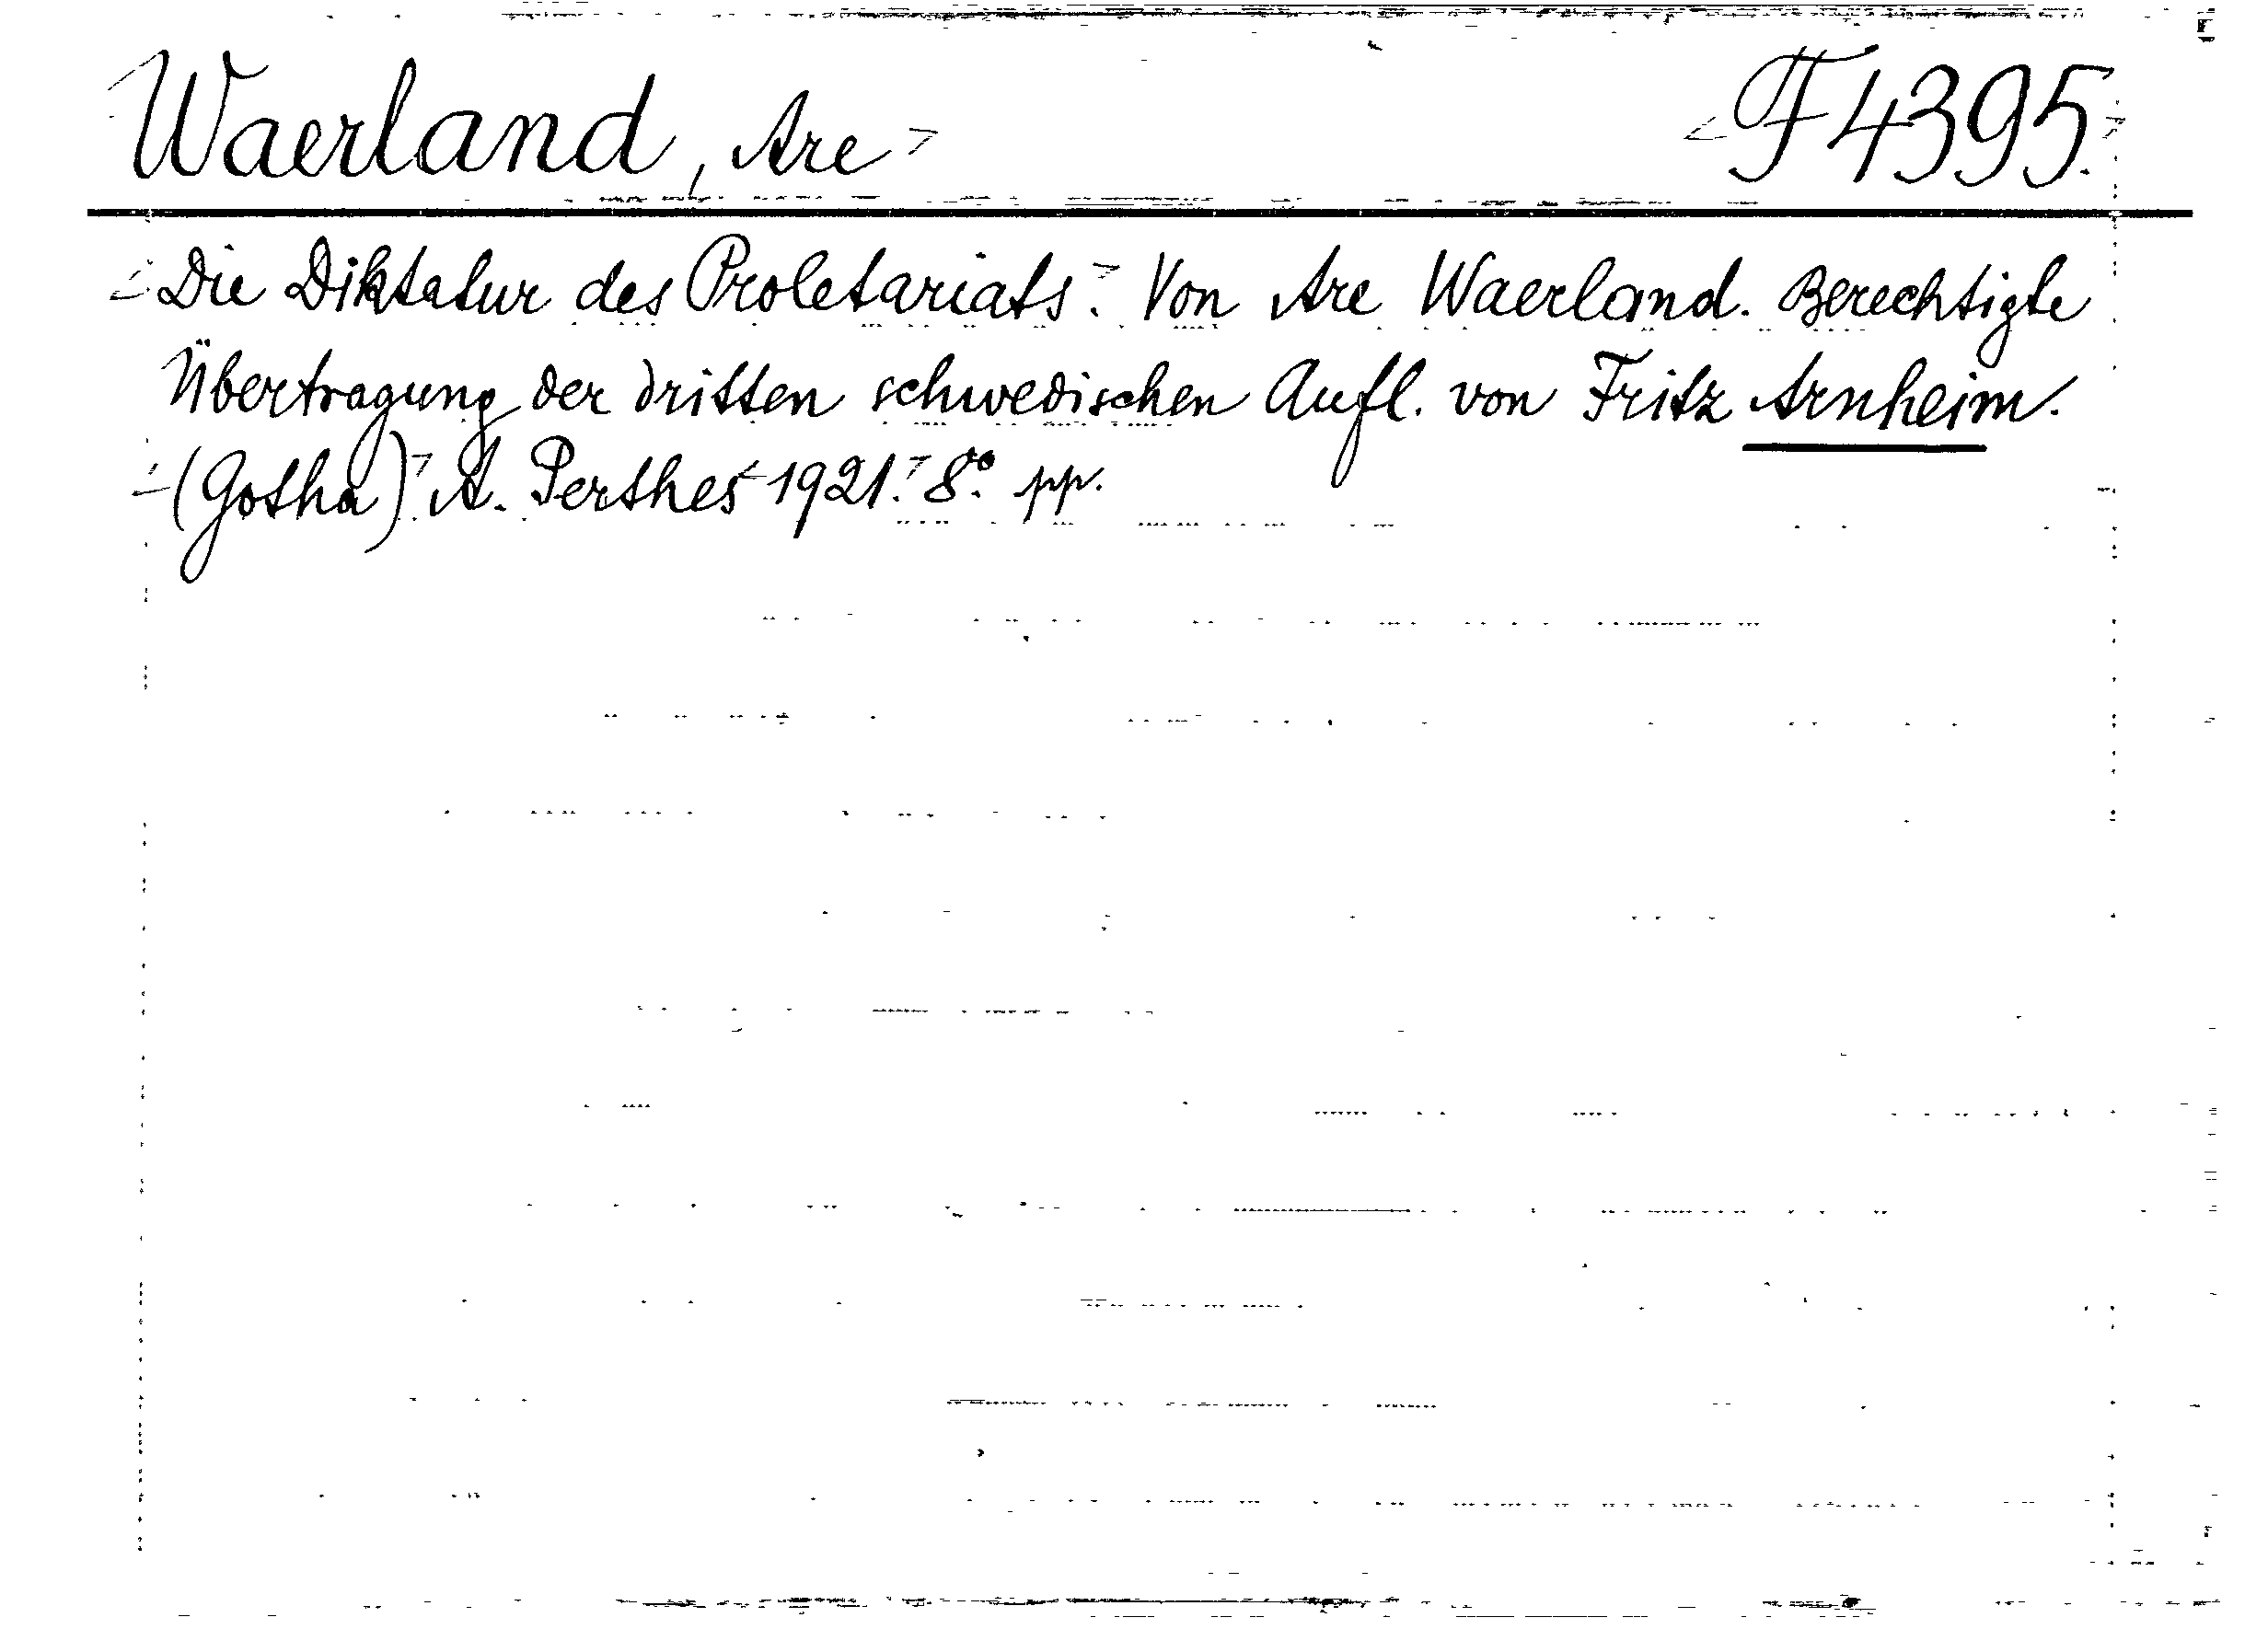 Waerland, Are F 4395.
Die Diktatur des Proletariats. Von Are Waerland. Berechtigte
Übertragung der dritten schwedischen Aufl. von Fritz Arnheim.
(Gotha) A. Perthes 1921. 8° pp.